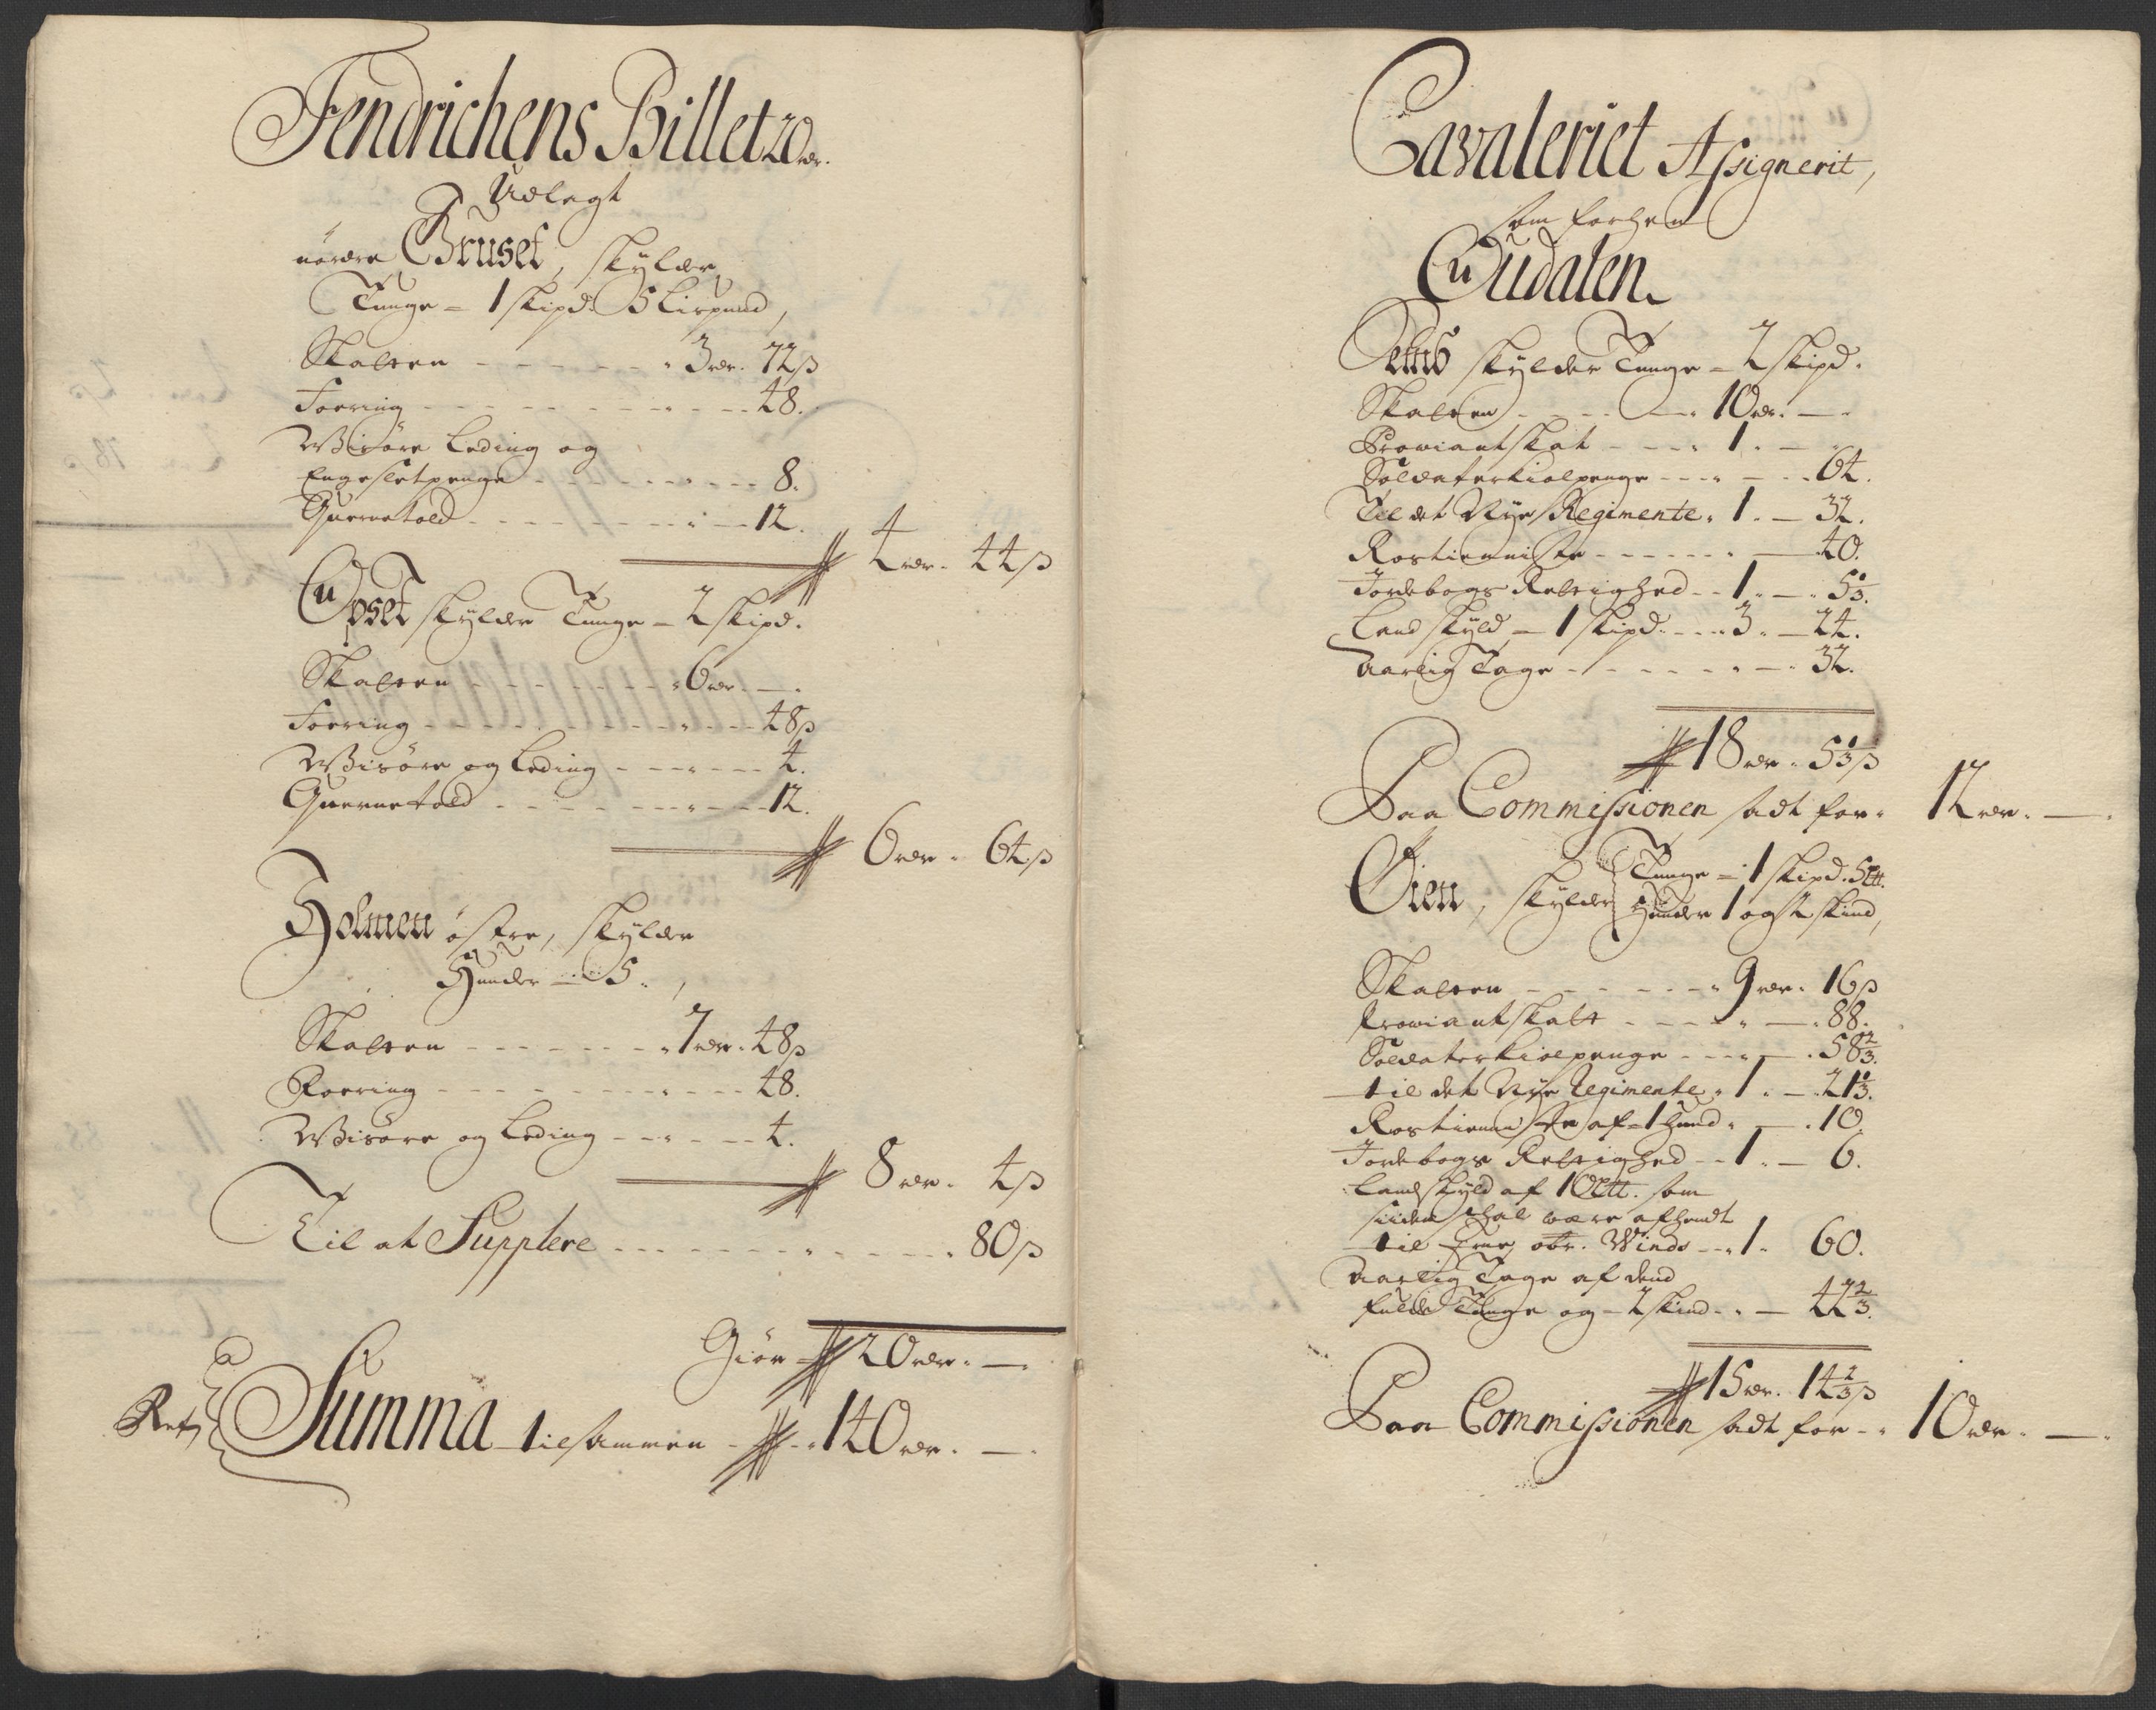 Fendrichens Billet 20 rdr.
Udlagt
nordre Gruset, skylder
Tunge = 1 skipd. 5 Lispund,
Skatten - - - - - - 3 rdr. 72 ß
Foering - - - - - - - 48.
Wisöre Leding og
Engesletpenge - - - - - 8.
Quernetold - - - - - - 12.
4 rdr. 44 ß
Opset skylder Tunge - 2 skipd.
Skatten - - - - - - 6 rdr. —
Foering - - - - - - - 48 ß
Wisöre og Leding - - - - 4.
Quernetold - - - - - - 12.
6 rdr. 64 ß
Holmen östre, skylder
Hunder — 5.,
Skatten - - - - - - 7 rdr. 48 ß
Foering - - - - - - - 48.
Wisöre og Leding - - - - 4.
8 rdr. 4 ß
Til at Supplere - - - - - - - 80 ß
Giör 20 rdr. —
Summa tilsammen - 140 rdr. —
Cavaleriet Assignerit,
som forhen
Oudalen.
skylder Tunge - 2 skipd.
Skatten - - - - 10 rdr. —
Proviantskat - - - 1. —
Soldaterkiolpenge - - - — 64.
Til det Nye Regimente. 1. — 32.
Rostienniste - - - - - — 40.
Jordebogs Rettighed - - 1. — 5 1/3.
Landskyld — 1 skipd. - - 3. — 24.
Aarlig Tage - - - - - — 32.
18 rdr. 5 1/3 ß
Paa Commissionen sadt for. 12 rdr. —
Öien, skylder Tunge — 1 skipd. 5 ℔.
Hunder 1 og 2 skind,
Skatten - - - - - 9 rdr. 16 ß
Proviantskatt - - - — 88.
Soldaterkiolpenge - - - — 58 2/3.
til det Nye Regimente. 1. — 21 1/3.
Rostienniste af 1 Hund. — 10.
Jordebogs Rettighed - - 1. — 6.
Landskyld af 10 ℔. som
siiden skal være afhendt
til Winds - - 1. 60.
Aarlig Tage af dend
fulde Tunge og - 2 skind - — 42 2/3.
15 rdr. 14 2/3 ß
Paa Commissionen sadt for - 10 rdr. —